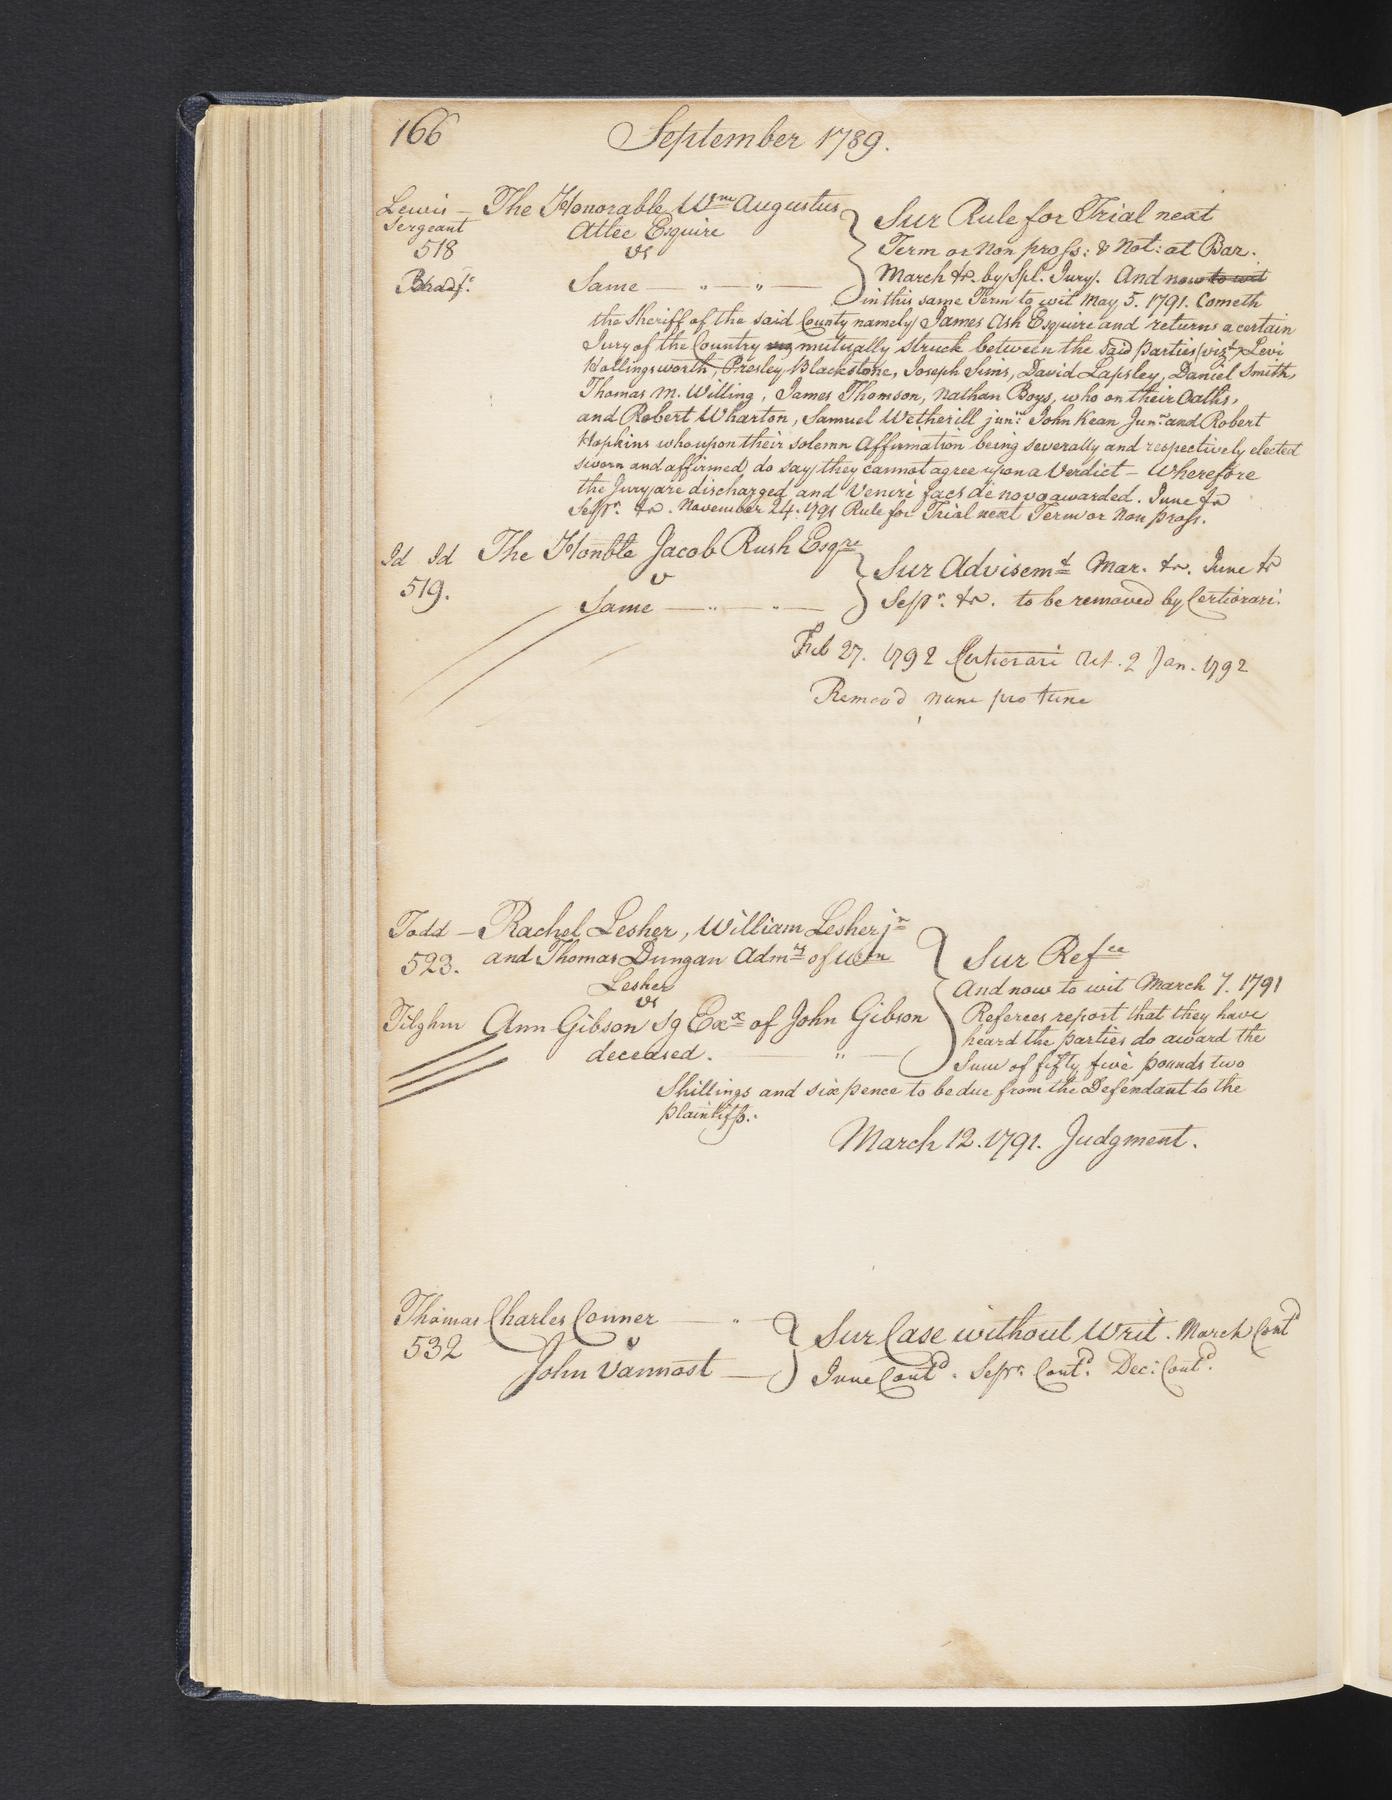 166 September 1789.
Lewis — The Honorable Wm Augustus
Sergeant Atlee Esquire
518 vs
Bradf: Same — " — " —
Sur Rule for Trial next
Term or Non pross: & Not: at Bar.
March &c. by Spl. Jury. And now to wit
in this same Term to wit May 5. 1791. Cometh
the Sheriff of the said County namely James Ash Esquire and returns a certain
Jury of the Country mutually struck between the said parties (vizt) Levi
Hollingsworth, Presley Blackstone, Joseph Sims, David Lapsley, Daniel Smith,
Thomas M. Willing, James Thomson, Nathan Boys, who on their Oaths,
and Robert Wharton, Samuel Wetherill junr: John Kean Junr: and Robert
Hopkins who upon their solemn Affirmation being severally and respectively elected
sworn and affirmed do say they cannot agree upon a Verdict — Wherefore
the Jury are discharged and Venire facs de novo awarded. June &c
Sepr. &c. November 24. 1791 Rule for Trial next Term or Non pross.
Id Id The Honble Jacob Rush Esqre
519. v
Same — " — " —
Sur Advisemt Mar. &c. June &c
Sepr. &c. to be removed by Certiorari.
Feb 27. 1792 Certiorari ret. 2 Jan. 1792
Remov'd nunc pro tunc
Todd — Rachel Lesher, William Lesher jr
523. and Thomas Dungan Admrs of Wm
Lesher
vs
Tilghm Ann Gibson Sg Exx of John Gibson
deceased. — " —
Sur Refce
And now to wit March 7. 1791
Referees report that they have
heard the parties do award the
Sum of fifty five pounds two
Shillings and six pence to be due from the Defendant to the
plaintiffs.
March 12. 1791. Judgment.
Thomas Charles Conner — "
532 v
John Vannost —
Sur Case without Writ. March Contd
June Contd. Sepr: Contd. Dec: Contd.